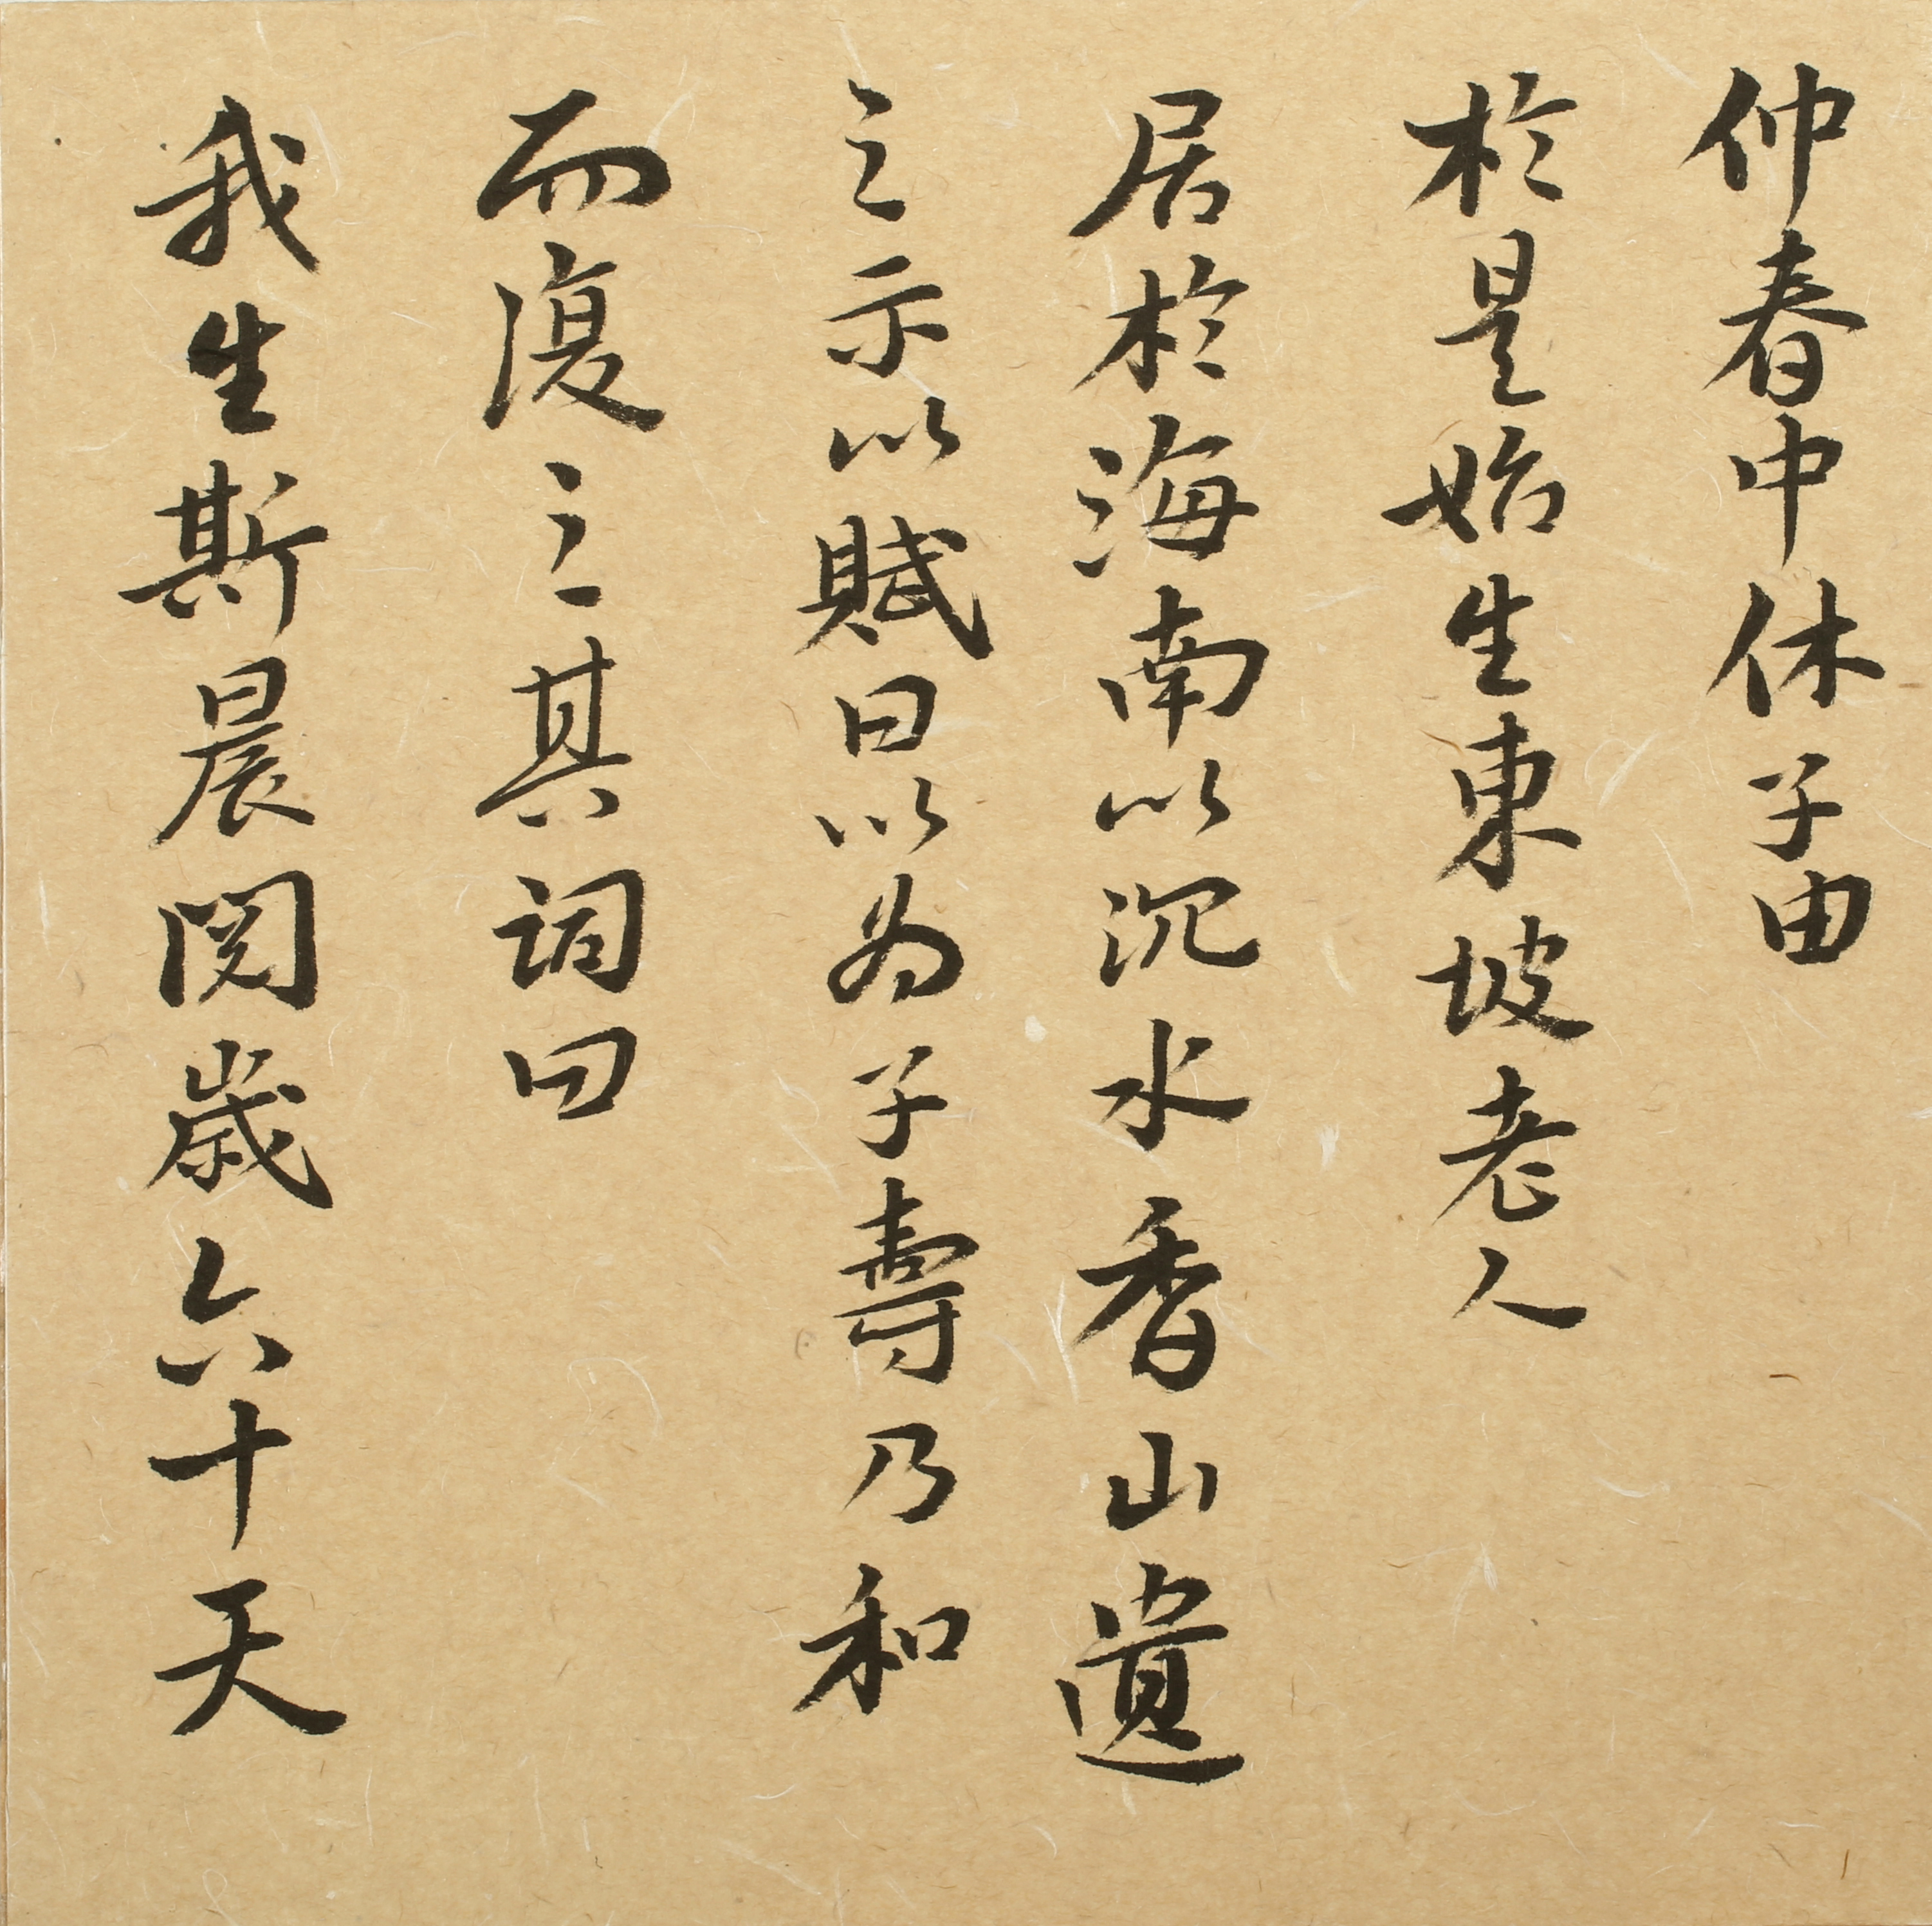 仲春中休子由
於是始生東坡老人
居於海南以沉水香山遺
之示以賦曰以為子壽乃和
而復之其詞曰
我生斯晨閱歲六十天